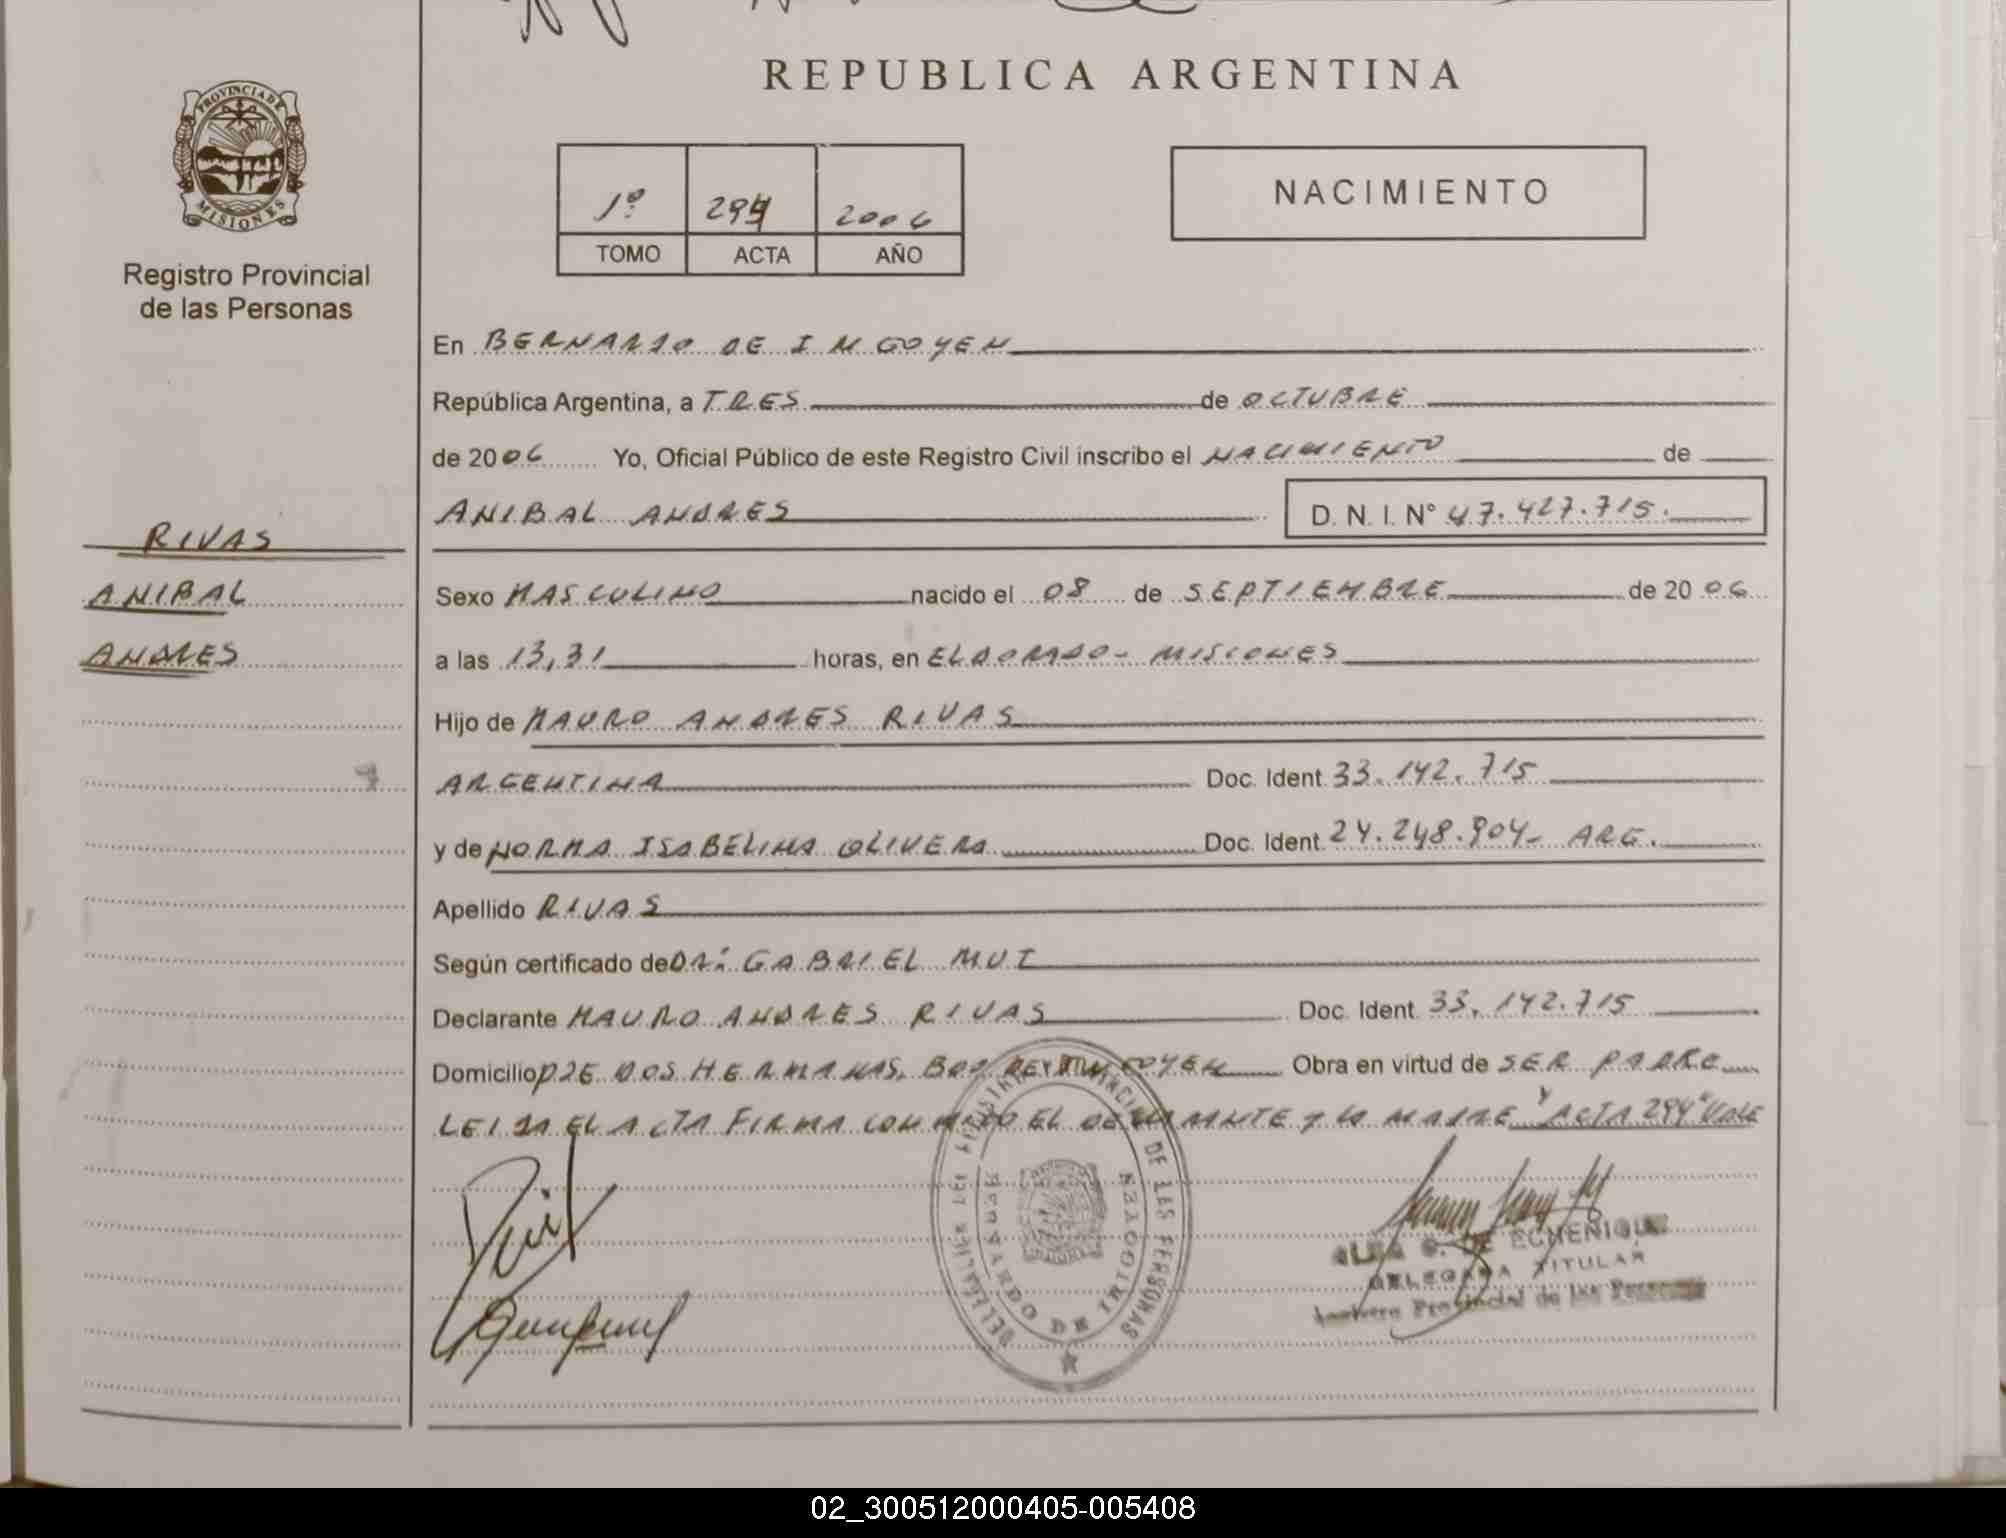 REPUBLICA ARGENTINA
PROVINCIA DE
MISIONES
Registro Provincial
de las Personas
1º 294 2006
TOMO ACTA AÑO
NACIMIENTO
En BERNARDO DE IRIGOYEN
República Argentina, a TRES de OCTUBRE
de 2006 Yo, Oficial Público de este Registro Civil inscribo el NACIMIENTO de
ANIBAL ANDRES D. N. I. N° 47.427.715.
RIVAS
ANIBAL
ANDRES
Sexo MASCULINO nacido el 08 de SEPTIEMBRE de 2006
a las 13,31 horas, en ELDORADO - MISIONES
Hijo de MAURO ANDRES RIVAS
ARGENTINA Doc. Ident. 33.142.715
y de NORMA ISABELINA OLIVERA Doc. Ident. 24.248.904- ARG.
Apellido RIVAS
Según certificado de DR: GABRIEL MUT
Declarante MAURO ANDRES RIVAS Doc. Ident. 33.142.715
Domicilio PJE DOS HERMANAS, BDO DE IRIGOYEN Obra en virtud de SER PADRE
LEIDA EL ACTA FIRMA CONMIGO EL DECLARANTE Y LA MADRE Y ACTA 294" VALE
DE LAS PERSONAS
BERNARDO DE IRIGOYEN
DE ECHENIQUE
DELEGADA TITULAR
Provincial de las Personas
02_300512000405-005408